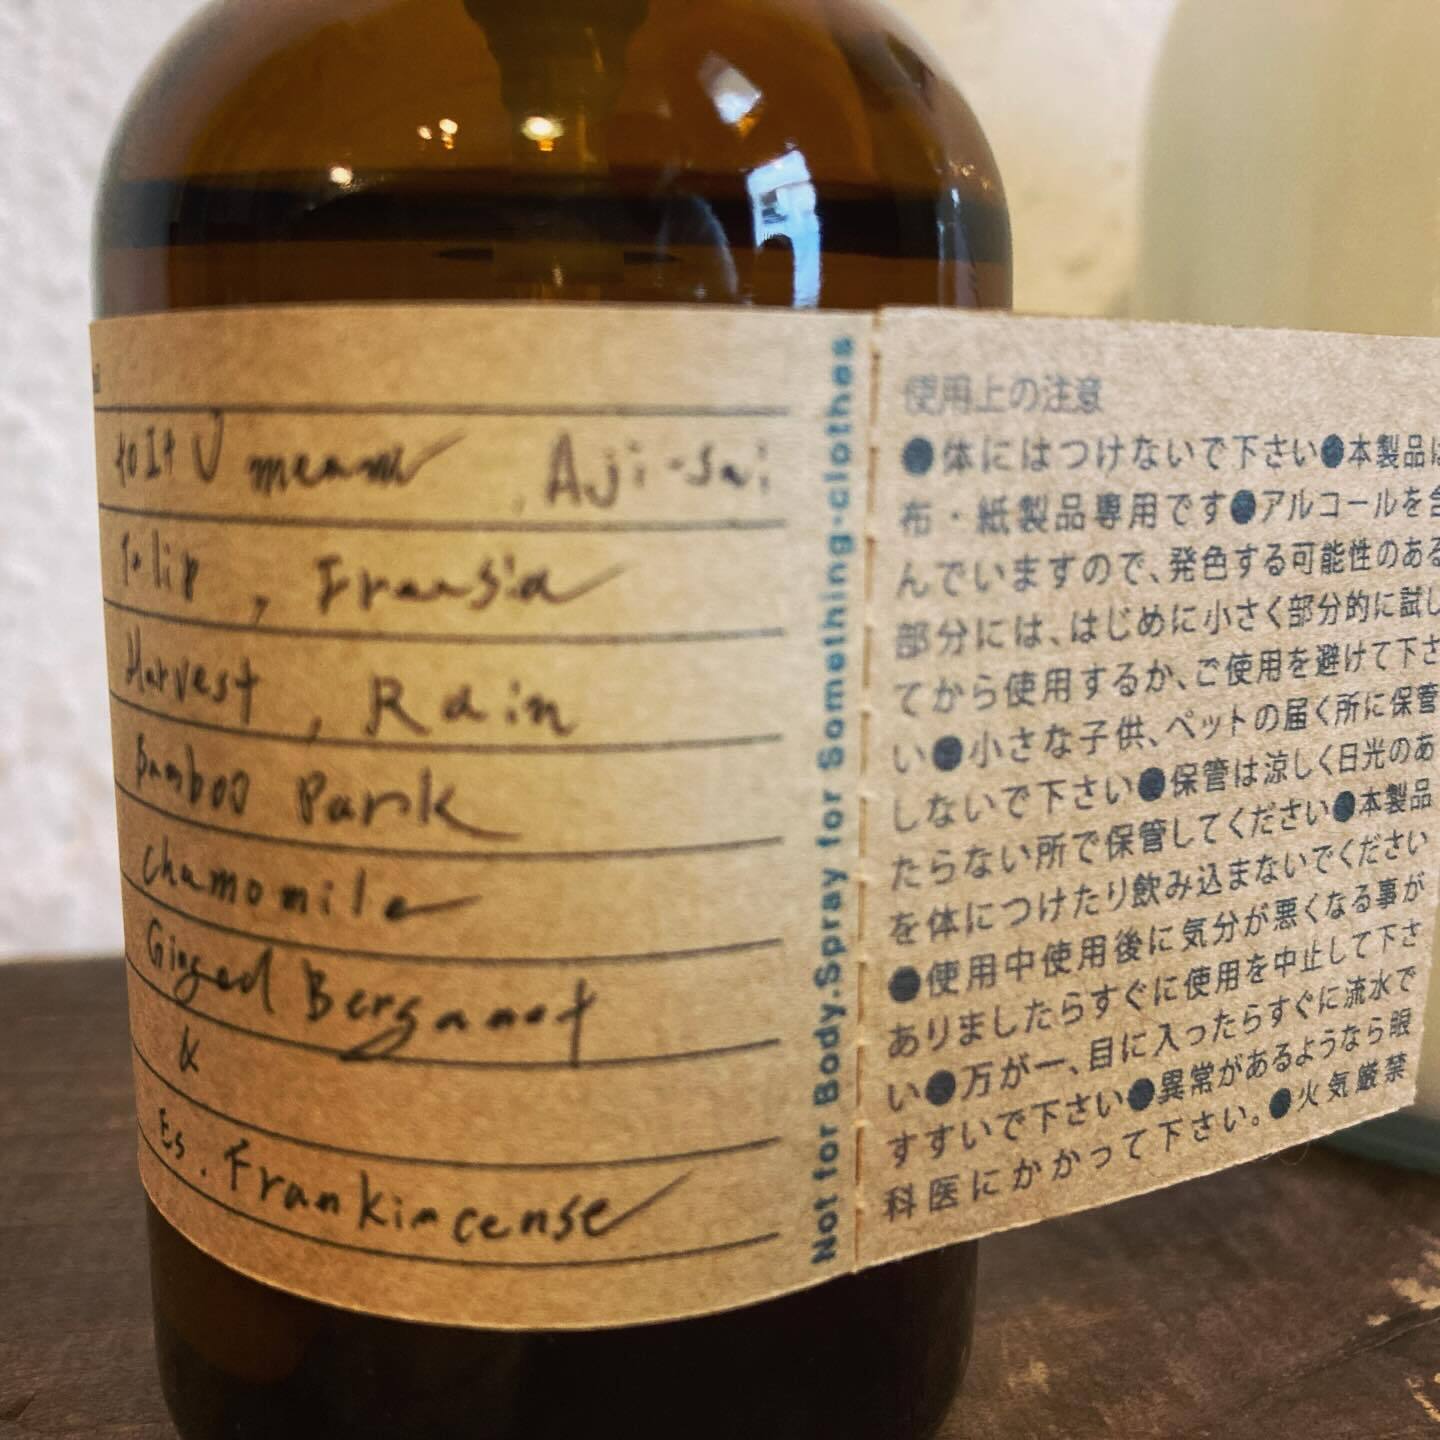 Aji-Sai
Tulip, Fransia
Harvest, Rain
Bamboo Park
Chamomile
Ginged Bergamot
&
Es. Frankincense
Not for Body.Spray for Something-clothes
使用上の注意
●体にはつけないで下さい●本製品は
布・紙製品専用です●アルコールを含
んでいますので、発色する可能性のある
部分には、はじめに小さく部分的に試し
てから使用するか、ご使用を避けて下さ
い●小さな子供、ペットの届く所に保管
しないで下さい●保管は涼しく日光のあ
たらない所で保管してください●本製品
を体につけたり飲み込まないでください
●使用中使用後に気分が悪くなる事が
ありましたらすぐに使用を中止して下さ
い●万が一、目に入ったらすぐに流水で
すすいで下さい●異常があるようなら眼
科医にかかって下さい。●火気厳禁